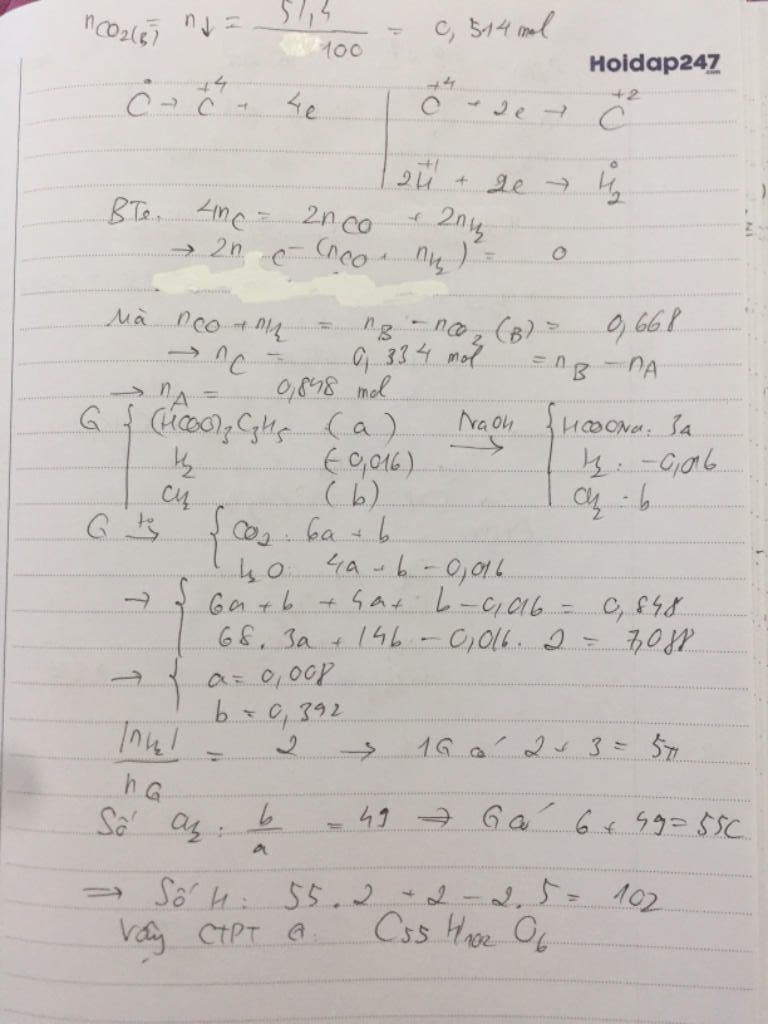 nCO2(B) = n↓ = 51,4/100 = 0,514 mol
Hoidap247.com
C⁰ → C⁺⁴ + 4e | C⁺⁴ + 2e → C⁺²
2H⁺¹ + 2e → H₂⁰
BTe. 4nC = 2nCO + 2nH2
→ 2nC - (nCO + nH2) = 0
Mà nCO + nH2 = nB - nCO2(B) = 0,668
→ nC = 0,334 mol = nB - nA
→ nA = 0,848 mol
G { (HCOO)3C3H5 (a) NaOH → { HCOONa: 3a
H2 (-0,016) H2: -0,016
CH2 (b) CH2: b
G t° → { CO2: 6a + b
H2O: 4a + b - 0,016
→ { 6a + b + 4a + b - 0,016 = 0,848
68.3a + 14b - 0,016.2 = 7,088
→ { a = 0,008
b = 0,392
|nH2|/nG = 2 → 1G có 2 + 3 = 5π
Số CH2: b/a = 49 → G có 6 + 49 = 55C
⇒ Số H: 55.2 + 2 - 2.5 = 102
Vậy CTPT G. C55H102O6